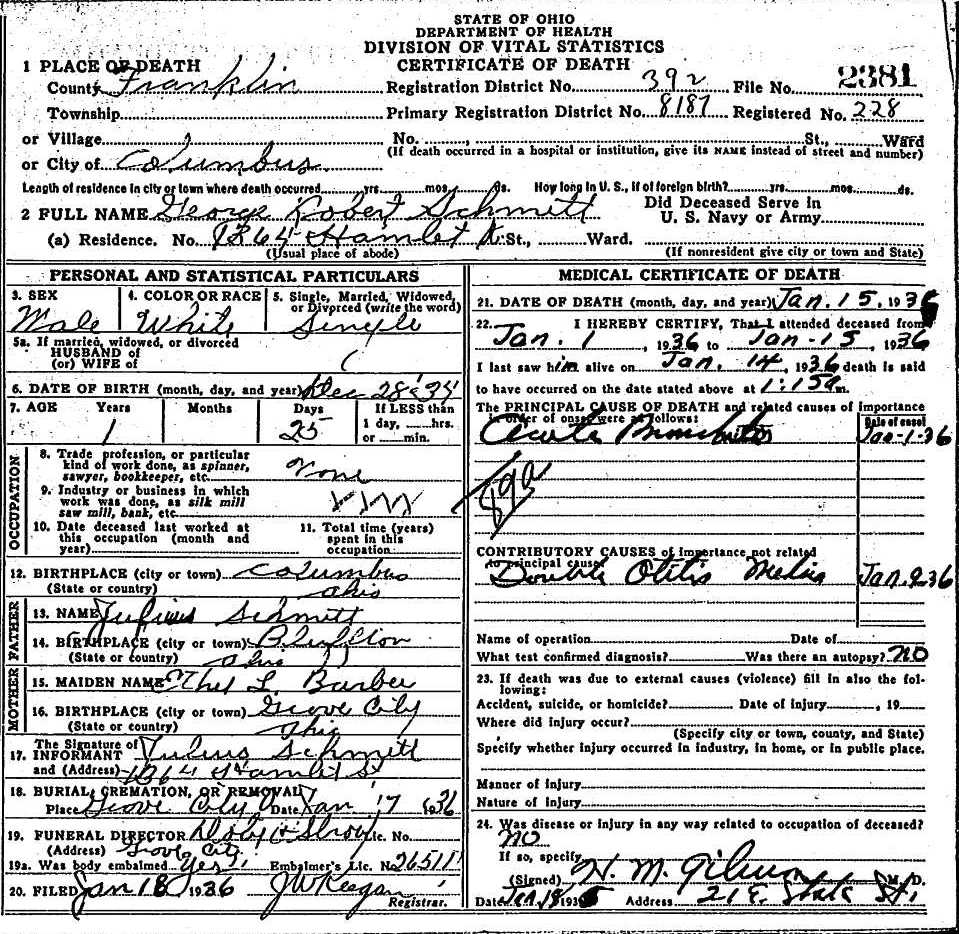 STATE OF OHIO
DEPARTMENT OF HEALTH
DIVISION OF VITAL STATISTICS
CERTIFICATE OF DEATH
1 PLACE OF DEATH
County Franklin Registration District No. 392 File No. 2381
Township Primary Registration District No. 8187 Registered No. 228
or Village No. , St., Ward
or City of Columbus (If death occurred in a hospital or institution, give its NAME instead of street and number)
Length of residence in city or town where death occurred yrs. mos. ds. How long in U. S., if of foreign birth? yrs. mos. ds.
2 FULL NAME George Robert Schmitt Did Deceased Serve in U. S. Navy or Army
(a) Residence. No. 1364 Hamlet St., Ward.
(Usual place of abode) (If nonresident give city or town and State)
PERSONAL AND STATISTICAL PARTICULARS
3. SEX Male 4. COLOR OR RACE White 5. Single, Married, Widowed, or Divorced (write the word) Single
5a. If married, widowed, or divorced
HUSBAND of
(or) WIFE of
6. DATE OF BIRTH (month, day, and year) Dec 28
7. AGE Years 1 Months Days 25 If LESS than 1 day, hrs. or min.
OCCUPATION
8. Trade profession, or particular kind of work done, as spinner, sawyer, bookkeeper, etc. None
9. Industry or business in which work was done, as silk mill saw mill, bank, etc.
10. Date deceased last worked at this occupation (month and year)
11. Total time (years) spent in this occupation
12. BIRTHPLACE (city or town) Columbus
(State or country) Ohio
FATHER
13. NAME Julius Schmitt
14. BIRTHPLACE (city or town) Bluffton
(State or country) Ohio
MOTHER
15. MAIDEN NAME Ethel L. Barbee
16. BIRTHPLACE (city or town) Grove City
(State or country) Ohio
17. The Signature of INFORMANT Julius Schmitt
and (Address) 1364 Hamlet St
18. BURIAL, CREMATION, OR REMOVAL
Place Grove City O Date Jan 17 1936
19. FUNERAL DIRECTOR Lic. No.
(Address) Grove City
19a. Was body embalmed Yes Embalmer's Lic. No.
20. FILED Jan 18 1936 J W Keegan
Registrar.
MEDICAL CERTIFICATE OF DEATH
21. DATE OF DEATH (month, day, and year) Jan. 15. 1936
22. I HEREBY CERTIFY, That I attended deceased from
Jan. 1, 1936 to Jan - 15, 1936
I last saw him alive on Jan. 14, 1936 death is said
to have occurred on the date stated above at 1:15 a m.
The PRINCIPAL CAUSE OF DEATH and related causes of importance
in order of onset were as follows: Date of onset
Acute Bronchitis Jan-1-36
89a
CONTRIBUTORY CAUSES of importance not related
to principal cause:
Double Otitis Media Jan. 9-36
Name of operation Date of
What test confirmed diagnosis? Was there an autopsy? NO
23. If death was due to external causes (violence) fill in also the following:
Accident, suicide, or homicide? Date of injury , 19
Where did injury occur?
(Specify city or town, county, and State)
Specify whether injury occurred in industry, in home, or in public place.
Manner of injury
Nature of injury
24. Was disease or injury in any way related to occupation of deceased?
NO
If so, specify
(Signed) H. M. M. D.
Date Jan, 193 Address 21 E. State St.